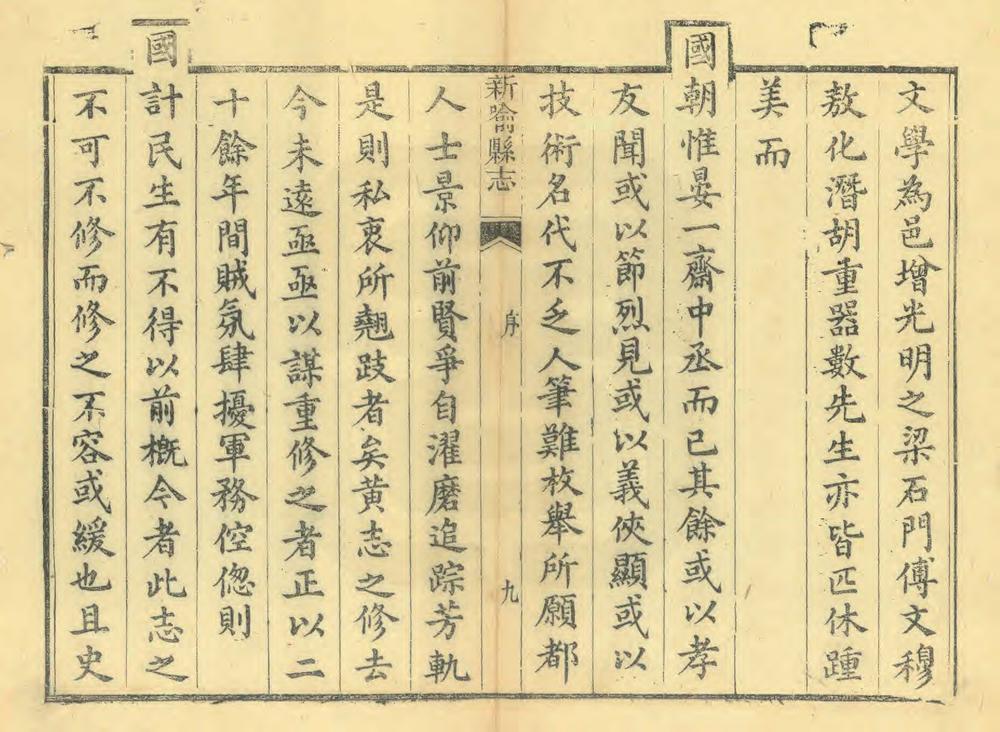 文學為邑增光明之梁石門傅文穆
敖化潛胡重器數先生亦皆匹休踵
美而
國朝惟晏一齋中丞而已其餘或以孝
友聞或以節烈見或以義俠顯或以
技術名代不乏人筆難枚舉所願都
新喻縣志
序
九
人士景仰前賢爭自濯磨追踪芳軌
是則私衷所翹跂者矣黃志之修去
今未遠亟亟以謀重修之者正以二
十餘年間賊氛肆擾軍務倥傯則
國計民生有不得以前概今者此志之
不可不修而修之不容或緩也且史